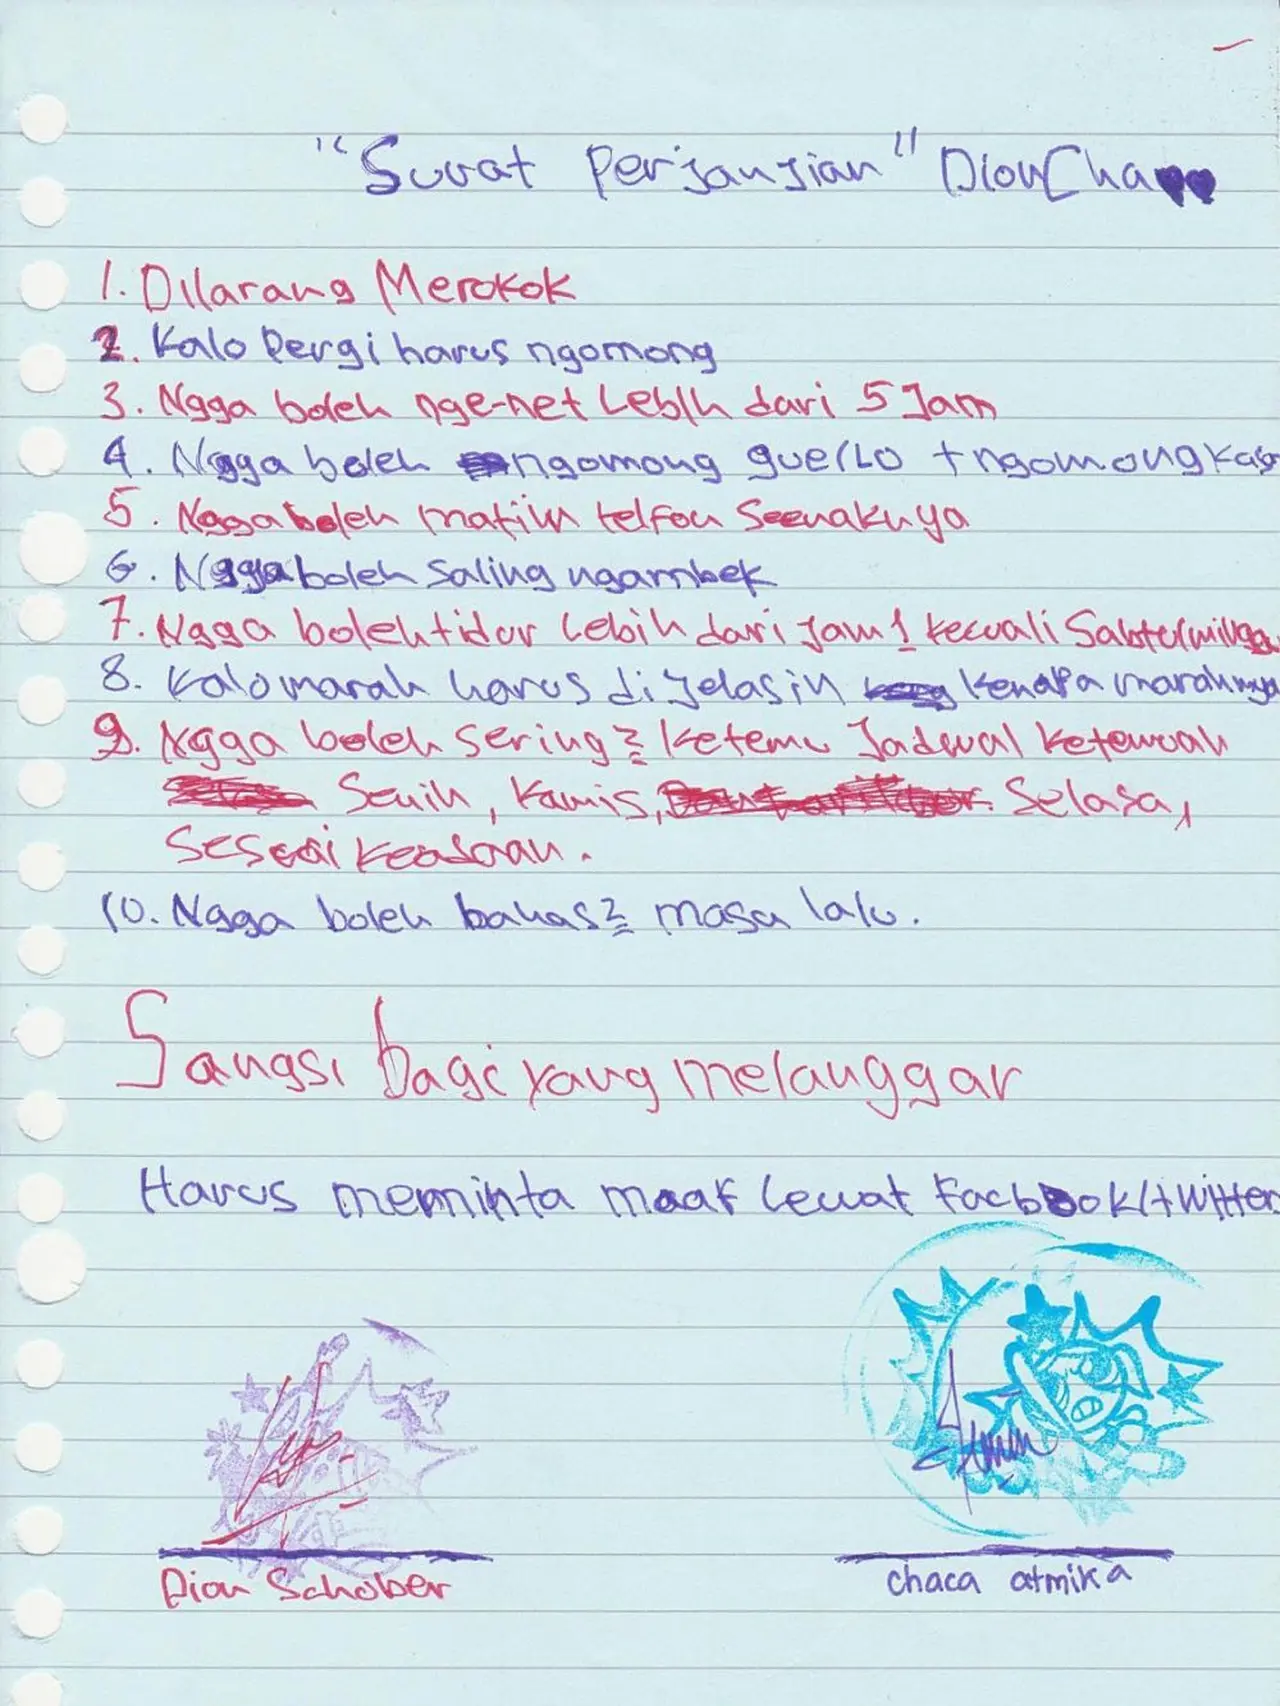 "Surat Perjanjian" DionCha
1. Dilarang Merokok
2. Kalo Pergi harus ngomong
3. Ngga boleh nge-net Lebih dari 5 Jam
4. Ngga boleh ngomong gue/Lo + ngomong
5. Ngga boleh matiin telfon Seenaknya
6. Ngga boleh Saling ngambek
7. Ngga boleh tidur Lebih dari Jam 1 kecuali Sabtu/minggu
8. Kalo marah harus di jelasin Kenapa marahnya
9. Ngga boleh Sering2 Ketemu Jadwal Ketemuan
Senin, Kamis, Selasa,
Sesuai Keadaan.
10. Ngga boleh bahas2 masa lalu.
Sangsi bagi yang melanggar
Harus meminta maaf Lewat Facbook/twitter
Dion Schober
chaca atmika